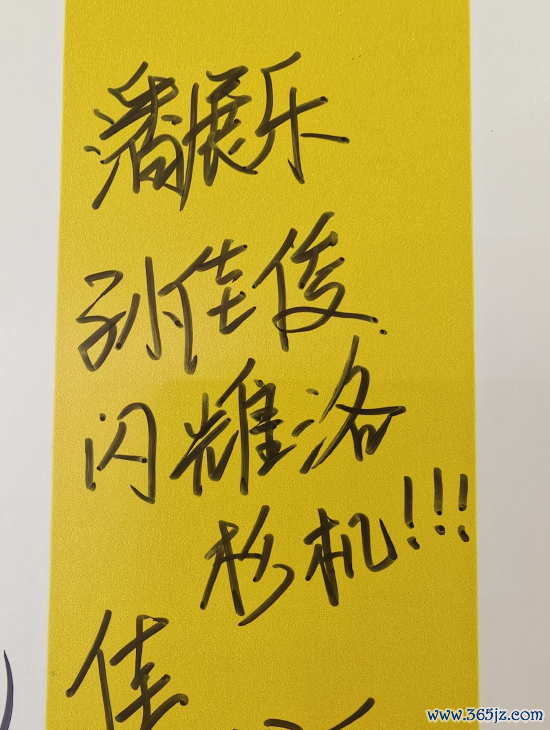 潘展乐
孙佳俊
闪耀洛
杉机!!!
佳
www.365jz.com